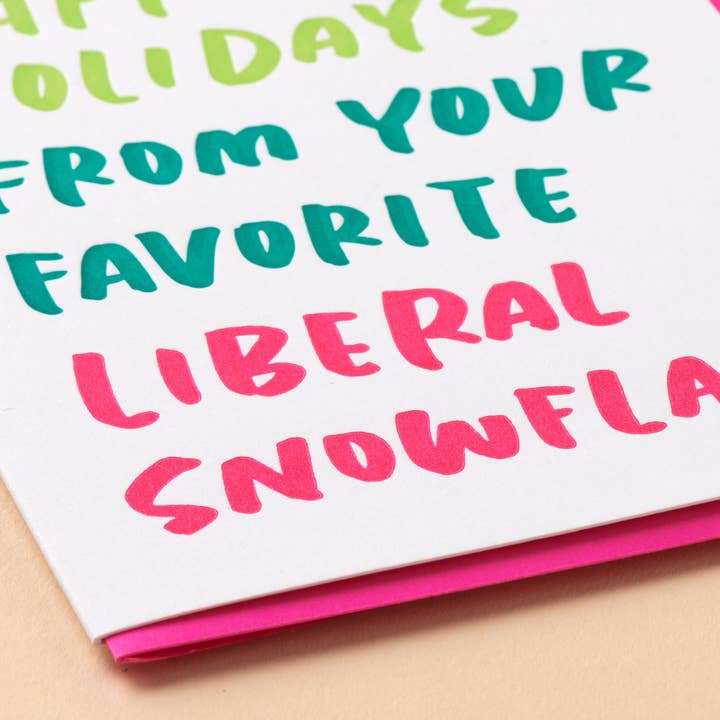 OLIDAYS
FROM YOUR
FAVORITE
LIBERAL
SNOWFLA